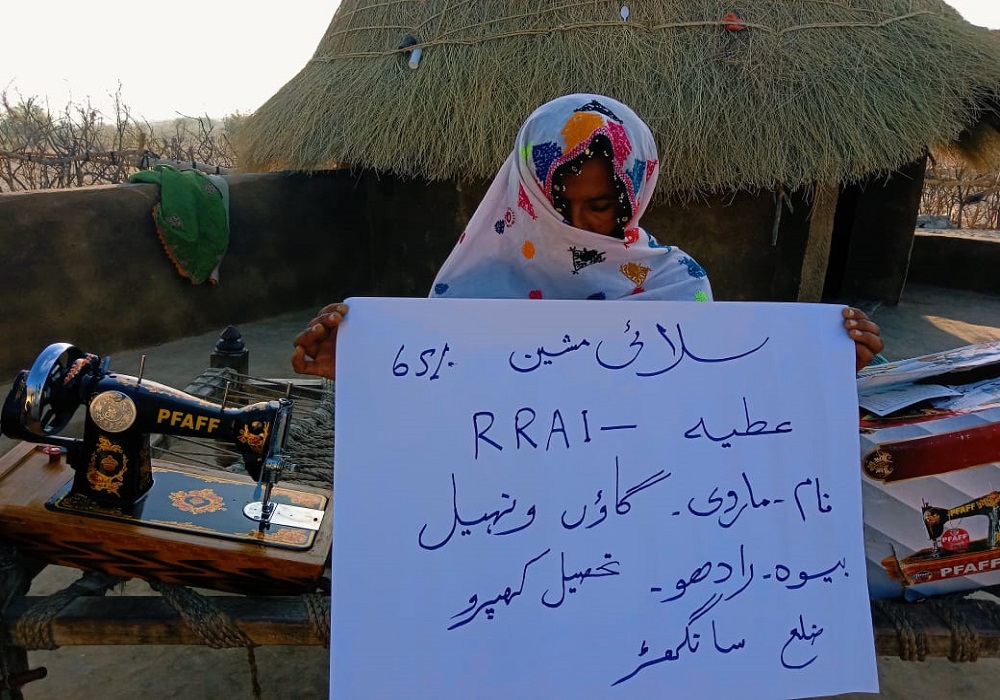 سلائی مشین 65%
عطیہ – RRAI
نام - ماروی۔ گاؤں ونہیل
بیوہ - رادھو۔ تحصیل کھپرو
ضلع سانگھڑ
PFAFF
PFAFF
PFAFF